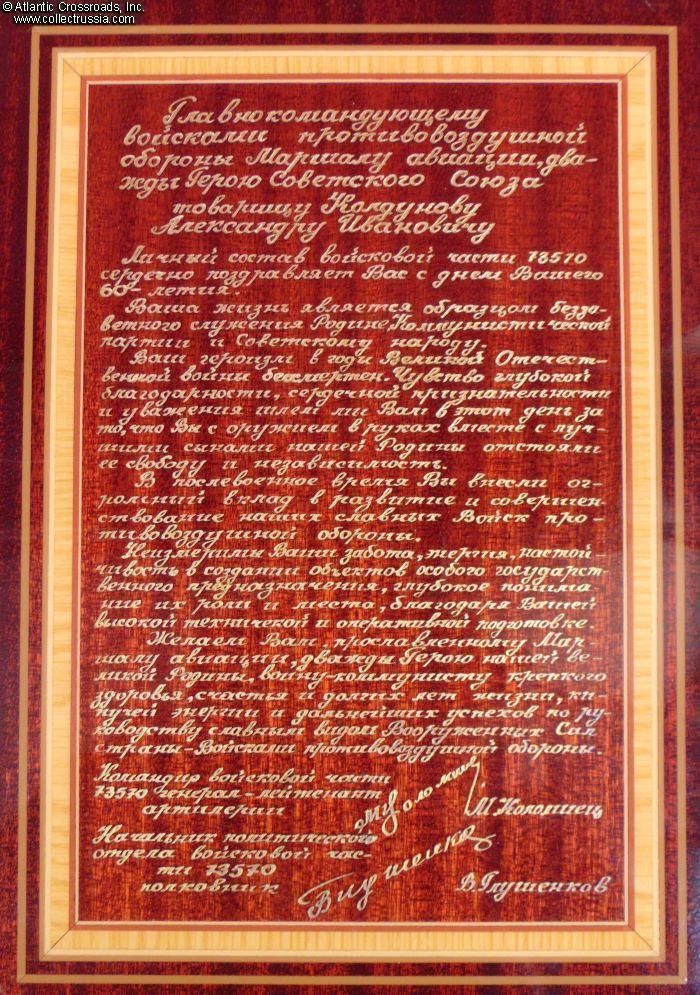 © Atlantic Crossroads, Inc.
www.collectrussia.com
Главнокомандующему
войсками противовоздушной
обороны Маршалу авиации, два-
жды Герою Советского Союза
товарищу Колдунову
Александру Ивановичу
Личный состав войсковой части 73570
сердечно поздравляет Вас с днем Вашего
60-летия.
Ваша жизнь является образцом безза-
ветного служения Родине, Коммунистической
партии и Советскому народу.
Ваш героизм в годы Великой Отечест-
венной войны бессмертен. Чувство глубокой
благодарности, сердечной признательности
и уважения шлем мы Вам в этот день за
то, что Вы с оружием в руках вместе с луч-
шими сынами нашей Родины отстояли
ее свободу и независимость.
В послевоенное время Вы внесли ог-
ромный вклад в развитие и совершен-
ствование наших славных Войск про-
тивовоздушной обороны.
Неизмеримы Ваши забота, энергия, настой-
чивость в создании объектов особого государст-
венного предназначения, глубокое понима-
ние их роли и места, благодаря Вашей
высокой технической и оперативной подготовке.
Желаем Вам, прославленному Мар-
шалу авиации, дважды Герою нашей ве-
ликой Родины, воину-коммунисту крепкого
здоровья, счастья и долгих лет жизни, ки-
пучей энергии и дальнейших успехов по ру-
ководству славным видом Вооруженных Сил
страны-Войсками противовоздушной обороны.
Командир войсковой части
73570 генерал-лейтенант
артилерии
М. Коломиец
Начальник политического
отдела войсковой час-
ти 73570
полковник
В. Глушенков